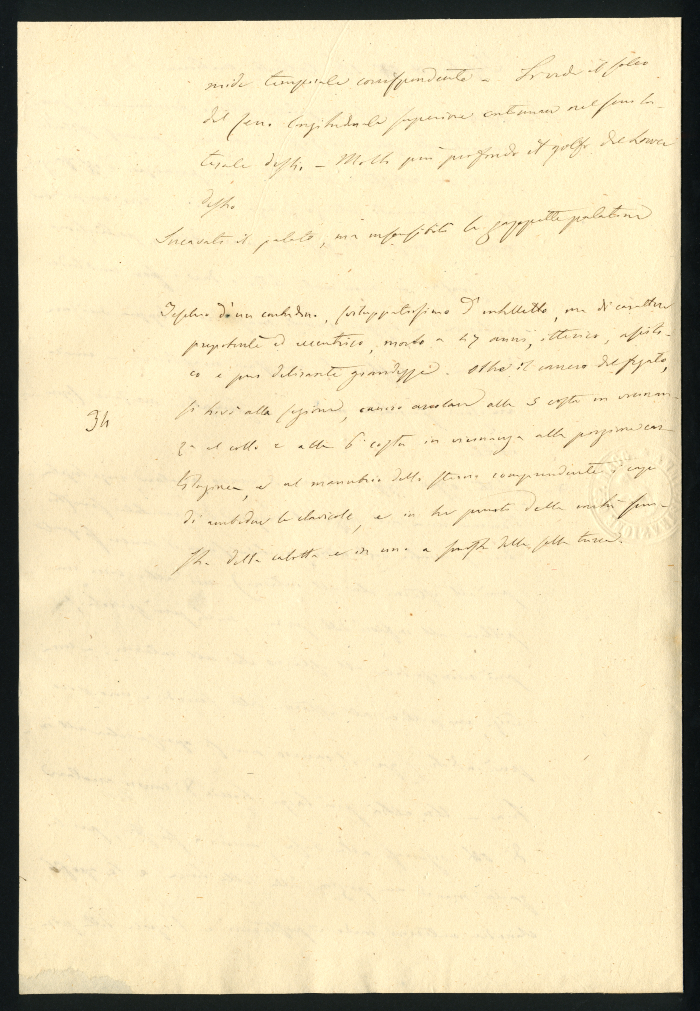 mide temporale corrispondente – Si vede il solco
del seno longitudinale superiore continuarsi nel seno la-
terale destro – Molto più profondo il golfo della
destro
Incavato il palato, ma le fossette palatine
Teschio d'un contadino, sviluppatissimo d'intelletto, ma di carattere
prepotente ed eccentrico, morto a 47 anni, itterico,
co e pur delirante . Oltre il cancro del fegato,
34
si trovò alla sezione, cancro alla 5 costa in vicinan-
za al collo e alla 6 costa in vicinanza alla porzione car-
tilaginea, e al manubrio dello sterno comprendente i capi
di ambedue le clavicole, e in tre punti della
stra della calotta e in uno a della sella turca.